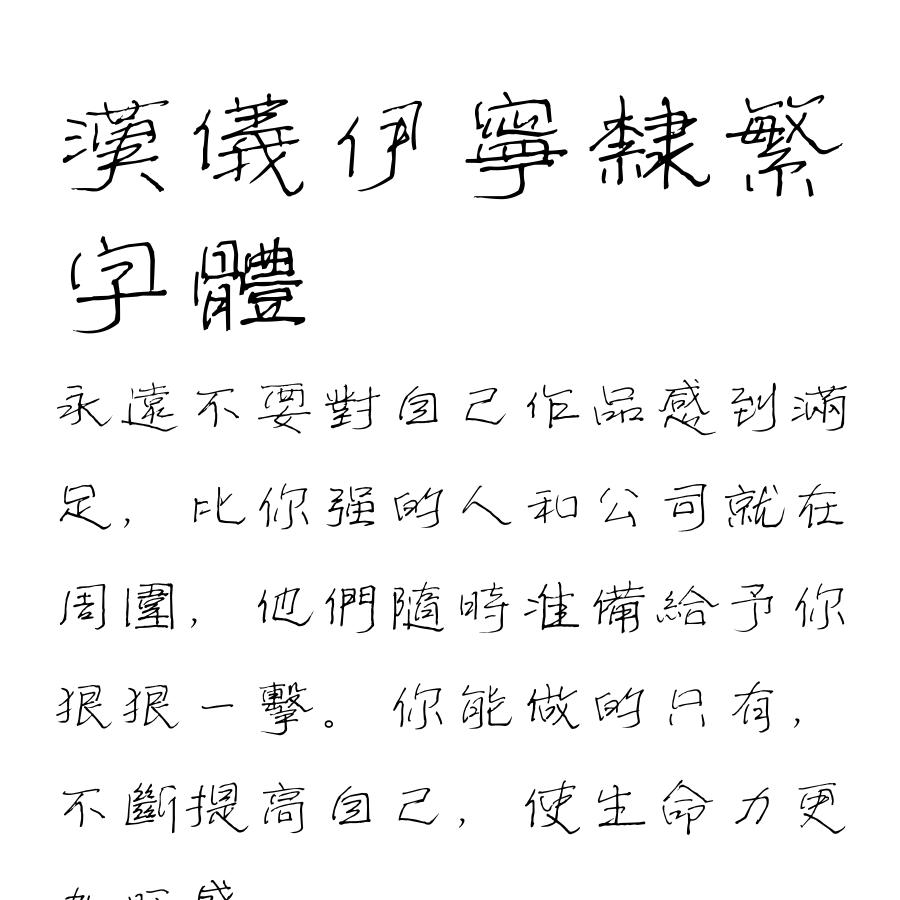 漢儀伊寧隸繁
字體
永遠不要對自己作品感到滿
足，比你强的人和公司就在
周圍，他們隨時准備給予你
狠狠一擊。你能做的只有，
不斷提高自己，使生命力更